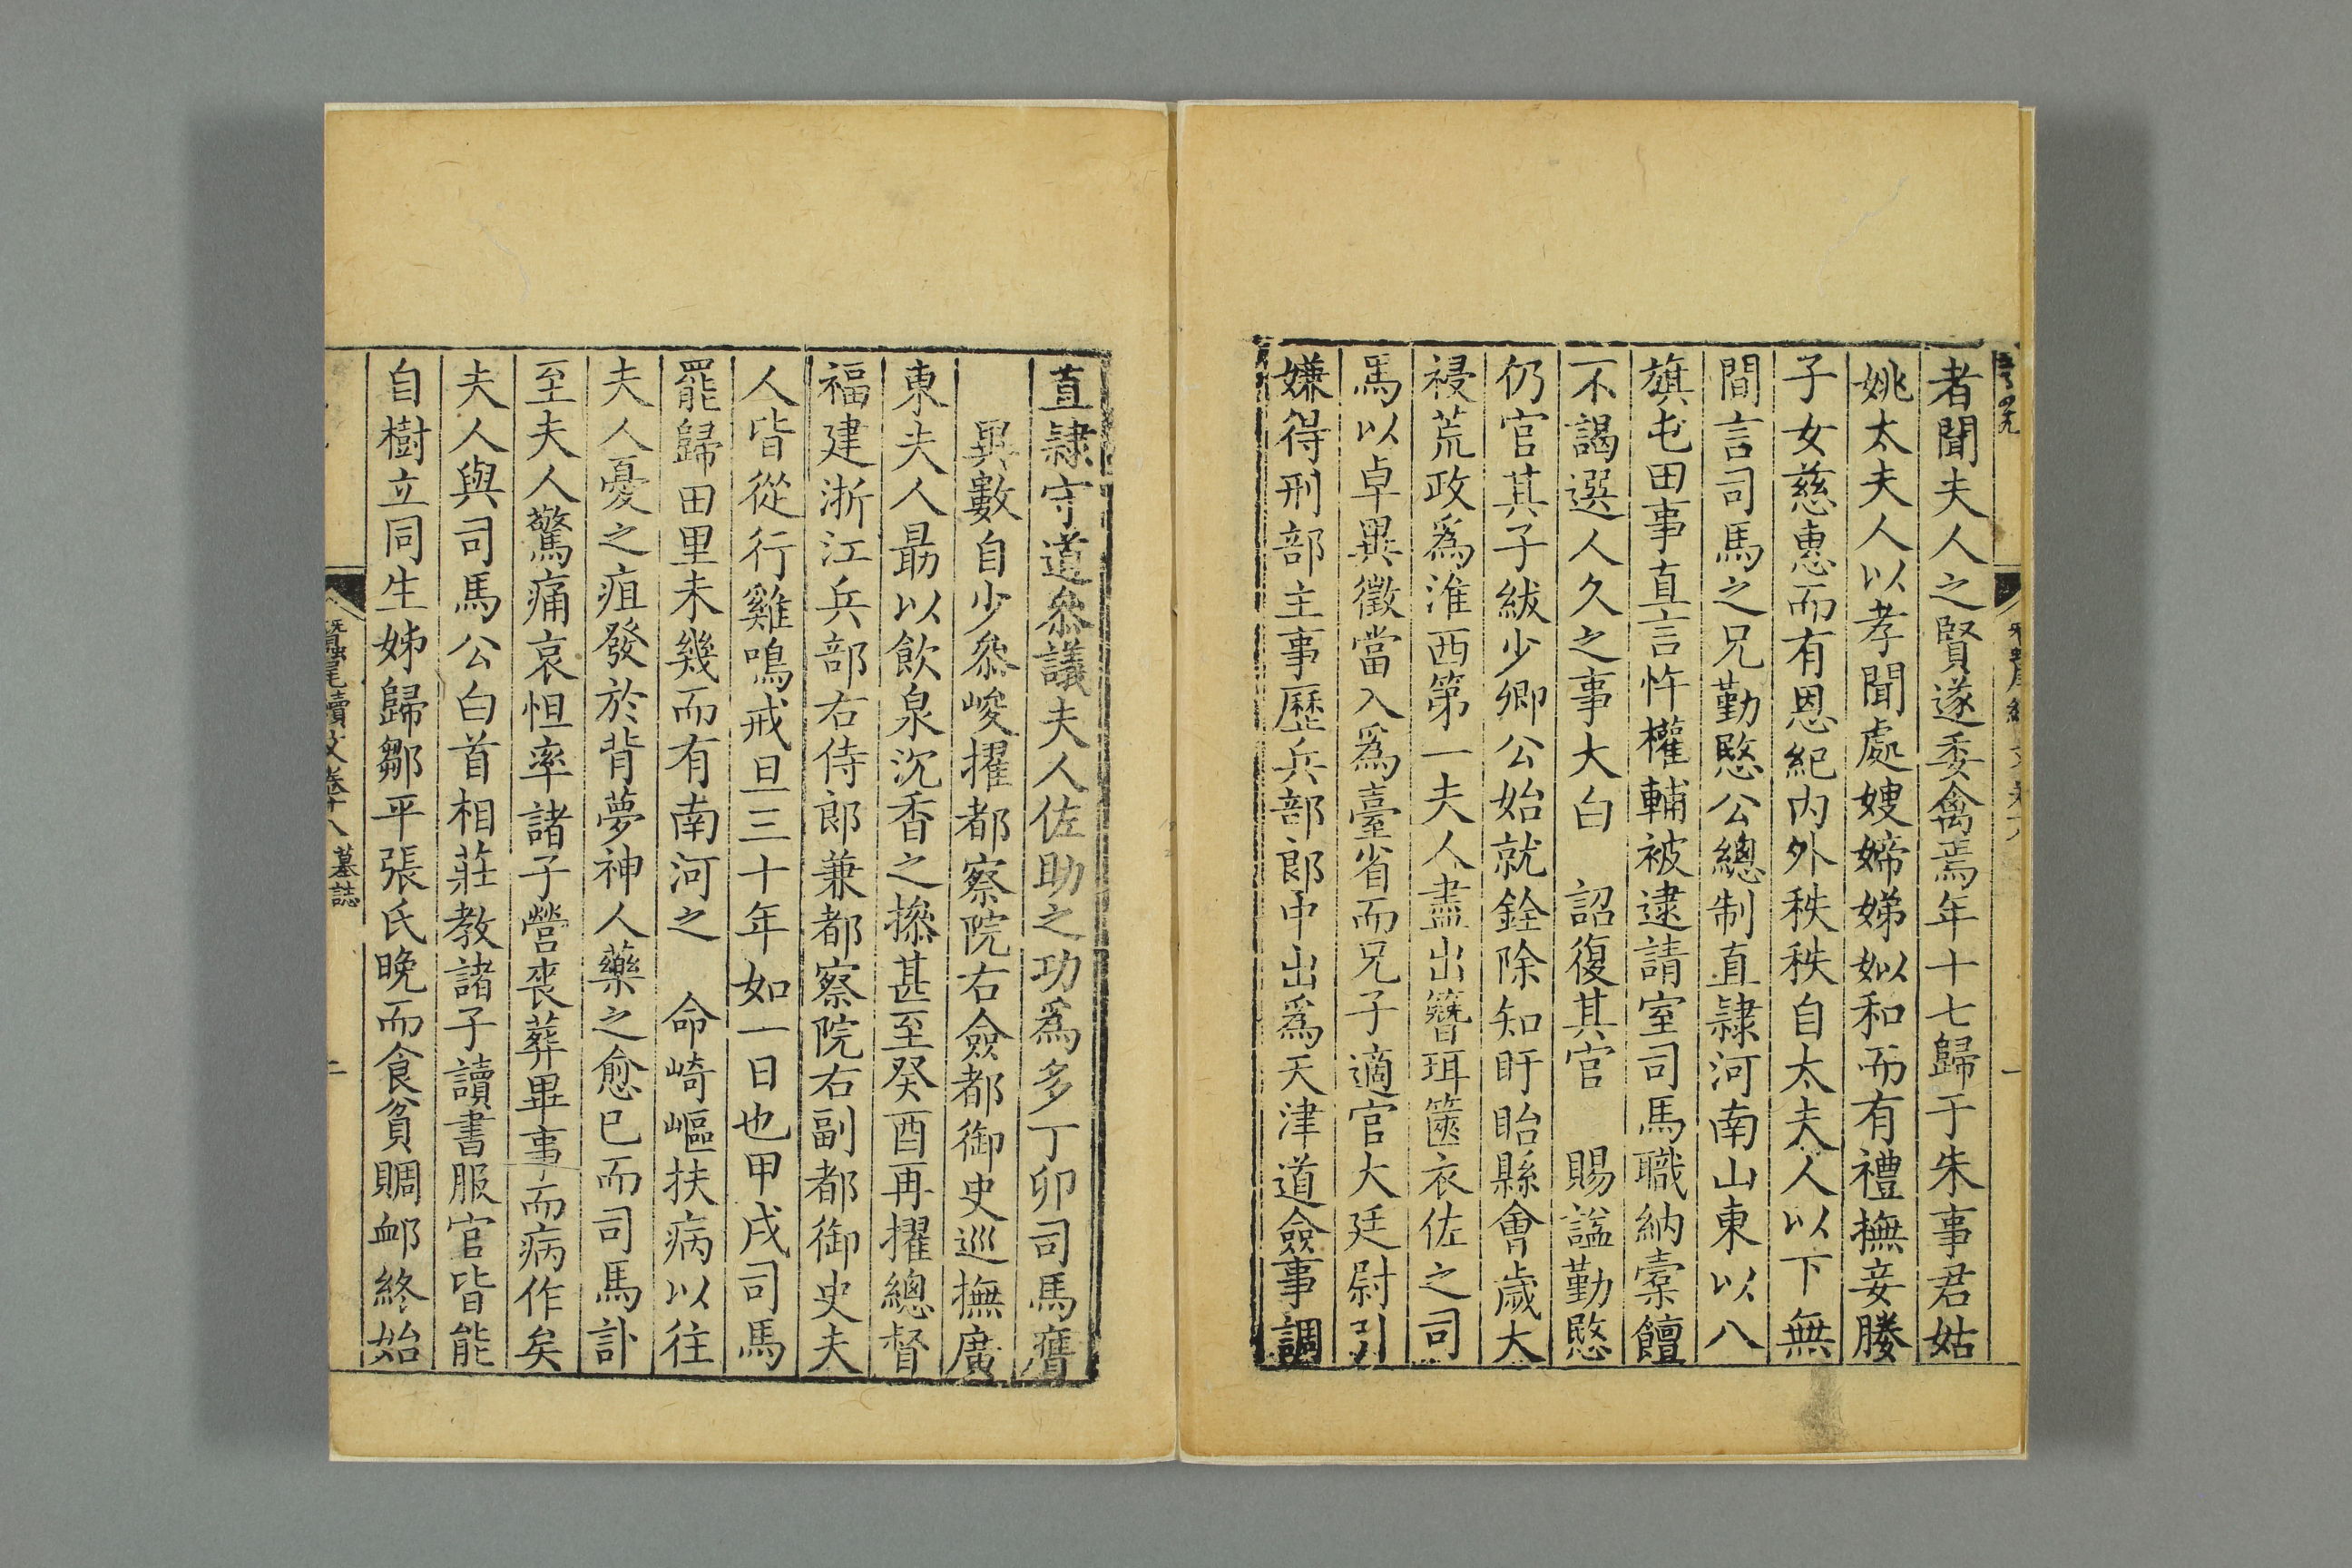 者聞夫人之賢遂委禽焉年十七歸于朱事君姑
姚太夫人以孝聞處嫂㛮娣姒和而有禮撫妾媵
子女慈恵而有恩紀内外秩秩自太夫人以下無
間言司馬之兄勤愍公總制直隷河南山東以八
旗屯田事直言忤權輔被逮請室司馬職納槖饘
不謁選人久之事大白　詔復其官　賜諡勤愍
仍官其子紱少卿公始就銓除知盱眙縣會歲大
祲荒政爲淮西第一夫人盡出簪珥篋衣佐之司
馬以卓異徵當入爲臺省而兄子適官大廷尉引
嫌得刑部主事歷兵部郎中出爲天津道僉事調
直隷守道叅議夫人佐助之功爲多丁卯司馬膺
異數自少叅峻擢都察院右僉都御史巡撫廣
東夫人最以飲泉沉香之操甚至癸酉再擢總督
福建浙江兵部右侍郎兼都察院右副都御史夫
人皆從行雞鳴戒旦三十年如一日也甲戌司馬
罷歸田里未幾而有南河之　命崎嶇扶病以往
夫人憂之疽發於背夢神人藥之愈已而司馬訃
至夫人驚痛哀怛率諸子營喪葬畢事而病作矣
夫人與司馬公白首相莊教諸子讀書服官皆能
自樹立同生姊歸鄒平張氏晚而食貧賙䘏終始
蠶尾續文卷十八　墓誌